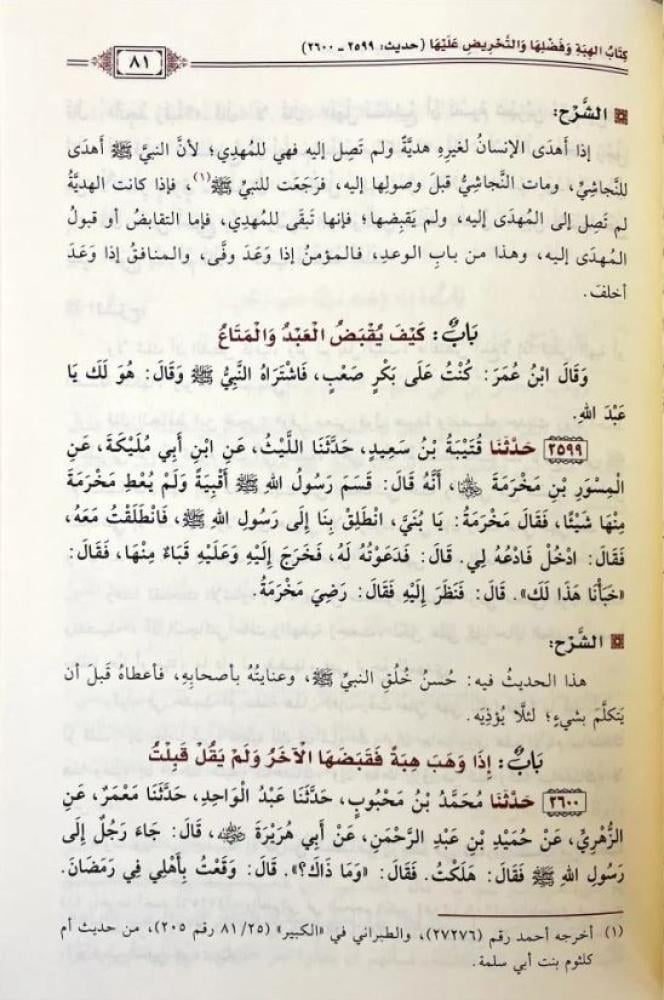 كِتَابُ الهِبَةِ وَفَضْلِهَا وَالتَّحْرِيضِ عَلَيْهَا (حديث: ٢٥٩٩ ـ ٢٦٠٠)
٨١
الشَّرْح:
إذا أَهدَى الإنسانُ لغيرِهِ هديَّةً ولم تَصِل إليه فهي للمُهدِي؛ لأنَّ النبيَّ ﷺ أَهدَى
للنجاشيِّ، ومات النَّجاشيُّ قبلَ وصولِها إليه، فرَجَعَت للنبيِّ ﷺ(١)، فإذا كانت الهديَّةُ
لم تَصِل إلى المُهدَى إليه، ولم يَقبِضها؛ فإنها تَبقَى للمُهدِي، فإما التقابضُ أو قبولُ
المُهدَى إليه، وهذا من بابِ الوعدِ، فالمؤمنُ إذا وَعَد وفَّى، والمنافقُ إذا وَعَد
أخلفَ.
بَابٌ: كَيْفَ يُقْبَضُ الْعَبْدُ وَالْمَتَاعُ
وَقَالَ ابْنُ عُمَرَ: كُنْتُ عَلَى بَكْرٍ صَعْبٍ، فَاشْتَرَاهُ النَّبِيُّ ﷺ وَقَالَ: هُوَ لَكَ يَا
عَبْدَ اللهِ.
٢٥٩٩ حَدَّثَنَا قُتَيْبَةُ بْنُ سَعِيدٍ، حَدَّثَنَا اللَّيْثُ، عَنِ ابْنِ أَبِي مُلَيْكَةَ، عَنِ
الْمِسْوَرِ بْنِ مَخْرَمَةَ ﵄، أَنَّهُ قَالَ: قَسَمَ رَسُولُ اللهِ ﷺ أَقْبِيَةً وَلَمْ يُعْطِ مَخْرَمَةَ
مِنْهَا شَيْئًا، فَقَالَ مَخْرَمَةُ: يَا بُنَيَّ، انْطَلِقْ بِنَا إِلَى رَسُولِ اللهِ ﷺ، فَانْطَلَقْتُ مَعَهُ،
فَقَالَ: ادْخُلْ فَادْعُهُ لِي. قَالَ: فَدَعَوْتُهُ لَهُ، فَخَرَجَ إِلَيْهِ وَعَلَيْهِ قَبَاءٌ مِنْهَا، فَقَالَ:
«خَبَأْنَا هَذَا لَكَ». قَالَ: فَنَظَرَ إِلَيْهِ فَقَالَ: رَضِيَ مَخْرَمَةُ.
الشَّرْح:
هذا الحديثُ فيه: حُسنُ خُلُقِ النبيِّ ﷺ، وعنايتُهُ بأصحابِهِ، فأعطاهُ قبلَ أن
يَتكلَّمَ بشيءٍ؛ لئلَّا يُؤذِيَه.
بَابٌ: إِذَا وَهَبَ هِبَةً فَقَبَضَهَا الْآخَرُ وَلَمْ يَقُلْ قَبِلْتُ
٢٦٠٠ حَدَّثَنَا مُحَمَّدُ بْنُ مَحْبُوبٍ، حَدَّثَنَا عَبْدُ الْوَاحِدِ، حَدَّثَنَا مَعْمَرٌ، عَنِ
الزُّهْرِيِّ، عَنْ حُمَيْدِ بْنِ عَبْدِ الرَّحْمَنِ، عَنْ أَبِي هُرَيْرَةَ ﵁، قَالَ: جَاءَ رَجُلٌ إِلَى
رَسُولِ اللهِ ﷺ فَقَالَ: هَلَكْتُ. فَقَالَ: «وَمَا ذَاكَ؟». قَالَ: وَقَعْتُ بِأَهْلِي فِي رَمَضَانَ.
(١) أخرجه أحمد رقم (٢٧٢٧٦)، والطبراني في «الكبير» (٨١/٢٥ رقم ٢٠٥)، من حديث أم
كلثوم بنت أبي سلمة.